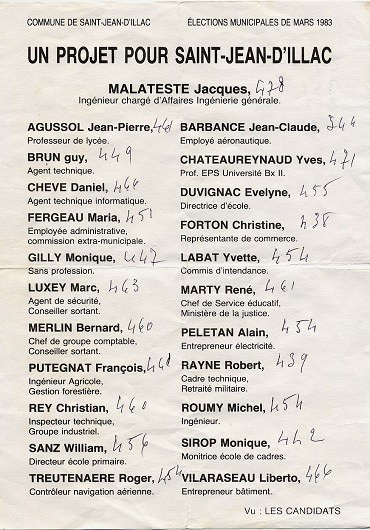 COMMUNE DE SAINT-JEAN-D'ILLAC
ÉLECTIONS MUNICIPALES DE MARS 1983
UN PROJET POUR SAINT-JEAN-D'ILLAC
MALATESTE Jacques, 478
Ingénieur chargé d'Affaires Ingénierie générale.
AGUSSOL Jean-Pierre,
Professeur de lycée.
BRUN guy, 449
Agent technique.
CHEVE Daniel,
Agent technique informatique.
FERGEAU Maria, 451
Employée administrative,
commission extra-municipale.
GILLY Monique, 447
Sans profession.
LUXEY Marc, 463
Agent de sécurité,
Conseiller sortant.
MERLIN Bernard, 460
Chef de groupe comptable,
Conseiller sortant.
PUTEGNAT François,
Ingénieur Agricole,
Gestion forestière.
REY Christian, 460
Inspecteur technique,
Groupe industriel.
SANZ William, 456
Directeur école primaire.
TREUTENAERE Roger, 454
Contrôleur navigation aérienne.
BARBANCE Jean-Claude,
Employé aéronautique.
CHATEAUREYNAUD Yves, 471
Prof. EPS Université Bx II.
DUVIGNAC Evelyne, 455
Directrice d'école.
FORTON Christine, 438
Représentante de commerce.
LABAT Yvette, 454
Commis d'intendance.
MARTY René, 461
Chef de Service éducatif,
Ministère de la justice.
PELETAN Alain, 454
Entrepreneur électricité.
RAYNE Robert, 439
Cadre technique,
Retraité militaire.
ROUMY Michel, 454
Ingénieur.
SIROP Monique, 442
Monitrice école de cadres.
VILARASEAU Liberto, 466
Entrepreneur bâtiment.
Vu : LES CANDIDATS